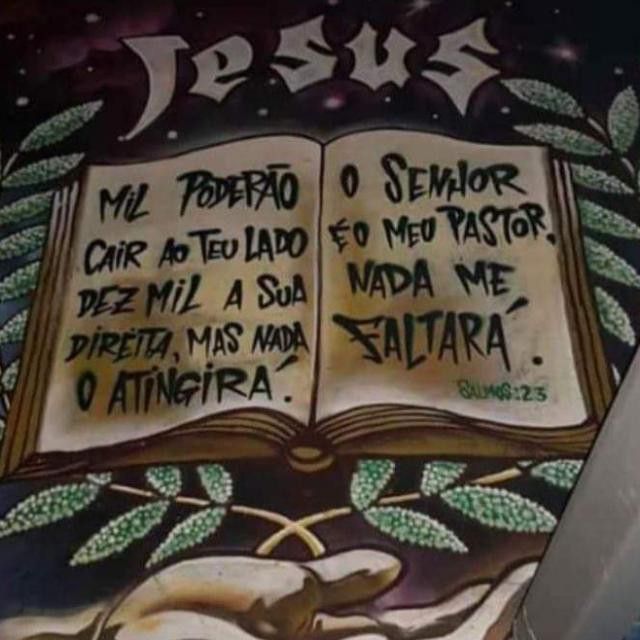 Jesus
MIL PODERÃO
CAIR AO TEU LADO
DEZ MIL A SUA
DIREITA, MAS NADA
O ATINGIRÁ.
O SENHOR
É O MEU PASTOR,
NADA ME
FALTARÁ.
SALMOS:23